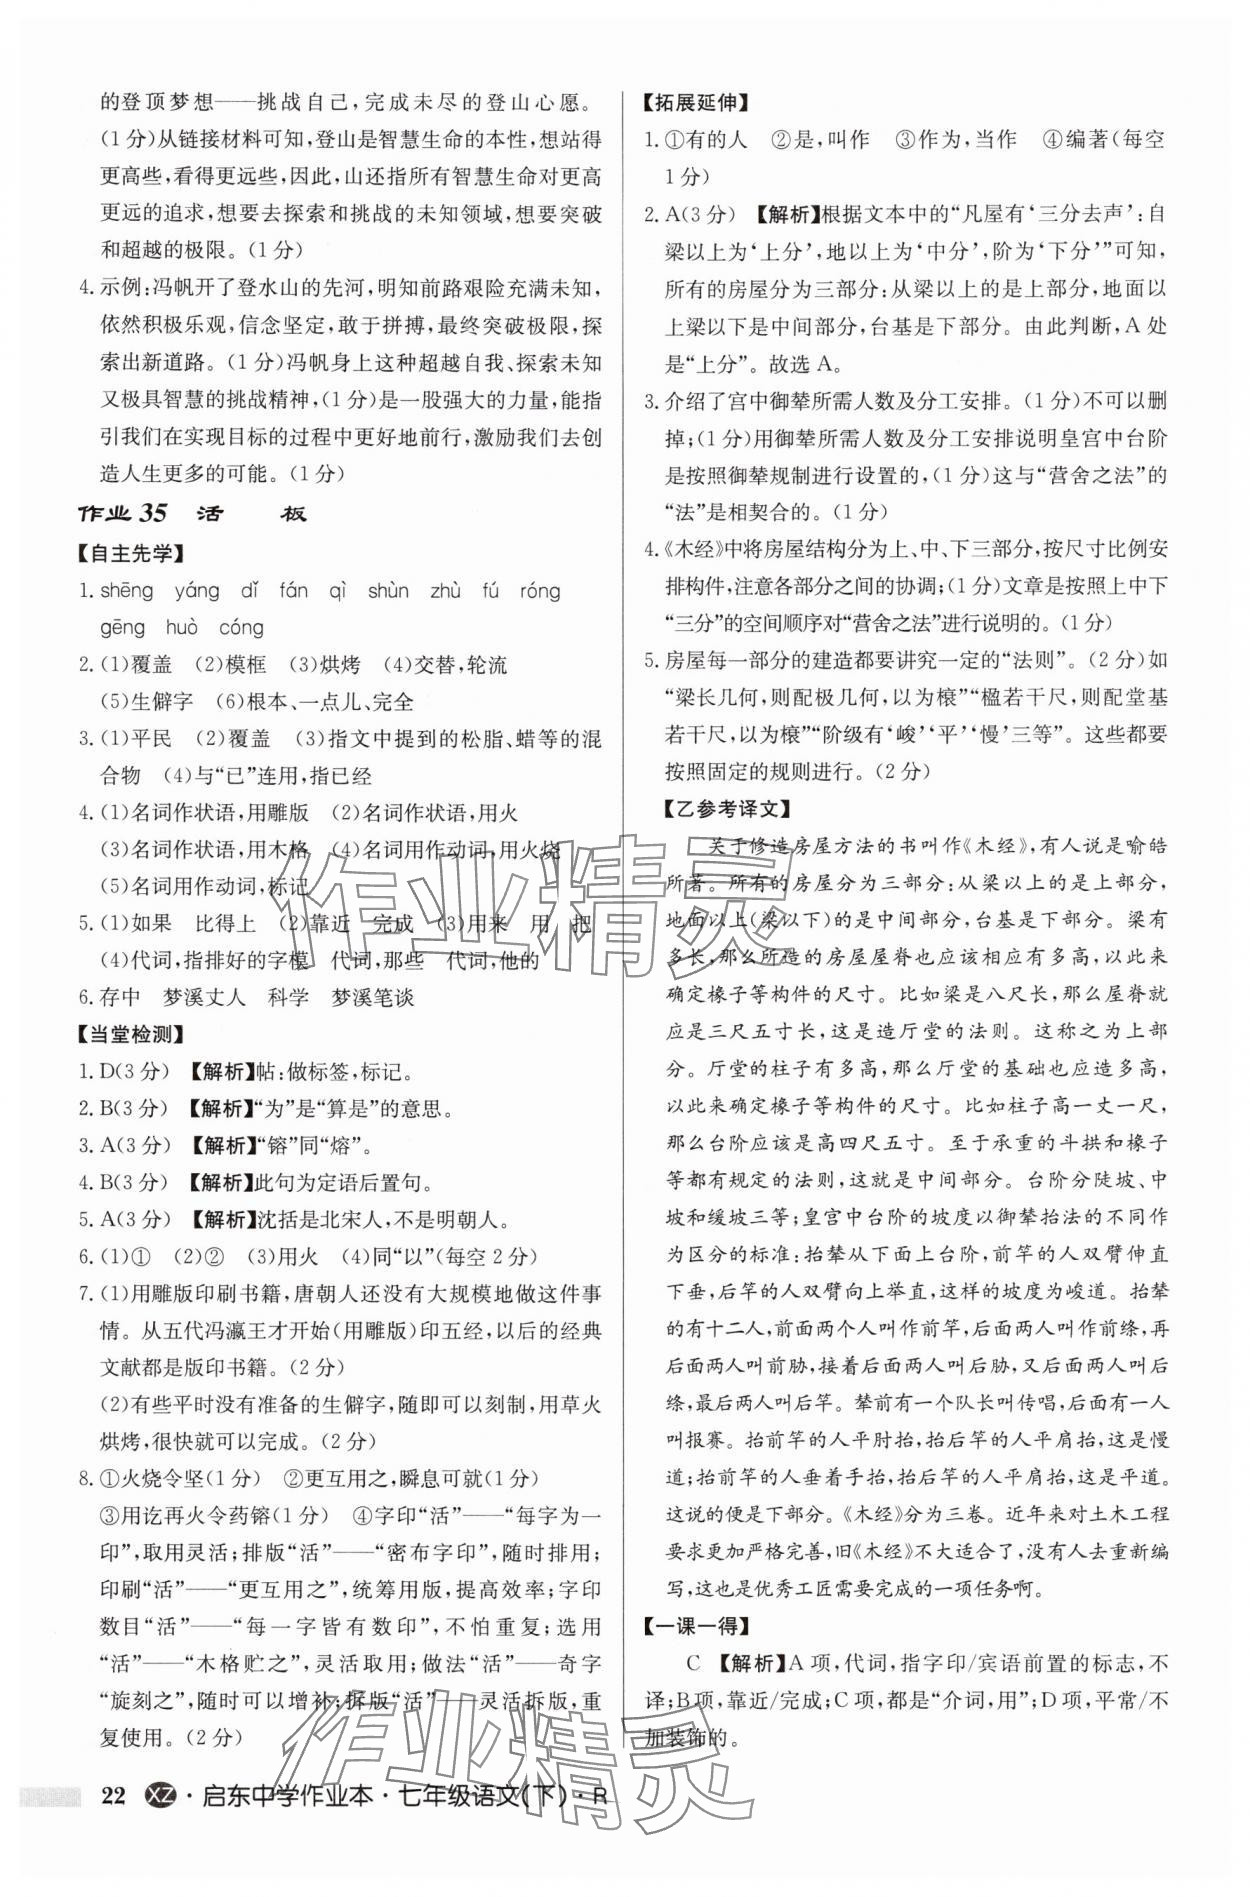 的登顶梦想——挑战自己,完成未尽的登山心愿。
(1分)从链接材料可知,登山是智慧生命的本性,拆得
更高些,看得更远些,因此,山还指所有智慧生命对更高
更远的追求,想要去探索和挑战的未知领域,想要突破
和超越的极限。(1分)
4. 示例:冯帆开了登水山的先河,明知前路艰险充满未知,
依然积极乐观,信念坚定,敢于拼搏,最终突破极限,探
索出新道路。(1分)冯帆身上这种超越自我、探索未知
又极具智慧的挑战精神,(1分)是一股强大的力量,能指
引我们在实现目标的过程中更好地前行,激励我们去创
造人生更多的可能。(1分)
作业35 活 板
【自主先学】
1. shēng yáng dǐ fán qì shùn zhù fú róng
gēng huò cóng
2. (1)覆盖 (2)模框 (3)烘烤 (4)交替,轮流
(5)生僻字 (6)根本、一点儿、完全
3. (1)平民 (2)覆盖 (3)指文中提到的松脂、蜡等的混
合物 (4)与“已”连用,指已经
4. (1)名词作状语,用雕版 (2)名词作状语,用火
(3)名词作状语,用木格 (4)名词用作动词,用火烧
(5)名词用作动词,标记
5. (1)如果 比得上 (2)靠近 完成 (3)用来 用 把
(4)代词,指排好的字模 代词,那些 代词,他的
6. 存中 梦溪丈人 科学 梦溪笔谈
【当堂检测】
1. D(3分) 【解析】帖:做标签,标记。
2. B(3分) 【解析】“为”是“算是”的意思。
3. A(3分) 【解析】“镕”同“熔”。
4. B(3分) 【解析】此句为定语后置句。
5. A(3分) 【解析】沈括是北宋人,不是明朝人。
6. (1)① (2)② (3)用火 (4)同“以”(每空2分)
7. (1)用雕版印刷书籍,唐朝人还没有大规模地做这件事
情。从五代冯瀛王才开始(用雕版)印五经,以后的经典
文献都是版印书籍。(2分)
(2)有些平时没有准备的生僻字,随即可以刻制,用草火
烘烤,很快就可以完成。(2分)
8. ①火烧令坚(1分) ②更互用之,瞬息可就(1分)
③用讫再火令药镕(1分) ④字印“活”——“每字为一
印”,取用灵活;排版“活”——“密布字印”,随时排用;
印刷“活”——“更互用之”,统筹用版,提高效率;字印
数目“活”——“每一字皆有数印”,不怕重复;选用
“活”——“木格贮之”,灵活取用;做法“活”——奇字
“旋刻之”,随时可以增补;拆版“活”——灵活拆版,重
复使用。(2分)
【拓展延伸】
1. ①有的人 ②是,叫作 ③作为,当作 ④编著(每空
1分)
2. A(3分) 【解析】根据文本中的“凡屋有‘三分去声’:自
梁以上为‘上分’,地以上为‘中分’,阶为‘下分’”可知,
所有的房屋分为三部分:从梁以上的是上部分,地面以
上梁以下是中间部分,台基是下部分。由此判断,A处
是“上分”。故选A。
3. 介绍了宫中御辇所需人数及分工安排。(1分)不可以删
掉;(1分)用御辇所需人数及分工安排说明皇宫中台阶
是按照御辇规制进行设置的,(1分)这与“营舍之法”的
“法”是相契合的。(1分)
4.《木经》中将房屋结构分为上、中、下三部分,按尺寸比例安
排构件,注意各部分之间的协调;(1分)文章是按照上中下
“三分”的空间顺序对“营舍之法”进行说明的。(1分)
5. 房屋每一部分的建造都要讲究一定的“法则”。(2分)如
“梁长几何,则配极几何,以为榱”“楹若干尺,则配堂基
若干尺,以为榱”“阶级有‘峻’‘平’‘慢’三等”。这些都要
按照固定的规则进行。(2分)
【乙参考译文】
关于修造房屋方法的书叫作《木经》,有人说是喻皓
所著。所有的房屋分为三部分:从梁以上的是上部分,
地面以上(梁以下)的是中间部分,台基是下部分。梁有
多长,那么所造的房屋屋脊也应该相应有多高,以此来
确定椽子等构件的尺寸。比如梁是八尺长,那么屋脊就
应是三尺五寸长,这是造厅堂的法则。这称之为上部
分。厅堂的柱子有多高,那么厅堂的基础也应造多高,
以此来确定椽子等构件的尺寸。比如柱子高一丈一尺,
那么台阶应该是高四尺五寸。至于承重的斗拱和椽子
等都有规定的法则,这就是中间部分。台阶分陡坡、中
坡和缓坡三等;皇宫中台阶的坡度以御辇抬法的不同作
为区分的标准:抬辇从下面上台阶,前竿的人双臂伸直
下垂,后竿的人双臂向上举直,这样的坡度为峻道。抬辇
的有十二人,前面两个人叫作前竿,后面两人叫作前绦,再
后面两人叫前胁,接着后面两人叫后胁,又后面两人叫后
绦,最后两人叫后竿。辇前有一个队长叫传唱,后有一人
叫报赛。抬前竿的人平肘抬,抬后竿的人平肩抬,这是慢
道;抬前竿的人垂着手抬,抬后竿的人平肩抬,这是平道。
这说的便是下部分。《木经》分为三卷。近年来对土木工程
要求更加严格完善,旧《木经》不大适合了,没有人去重新编
写,这也是优秀工匠需要完成的一项任务啊。
【一课一得】
C 【解析】A项,代词,指字印/宾语前置的标志,不
译;B项,靠近/完成;C项,都是“介词,用”;D项,平常/不
加装饰的。
22 XZ·启东中学作业本·七年级语文(下)·R
作业精灵
作业精灵